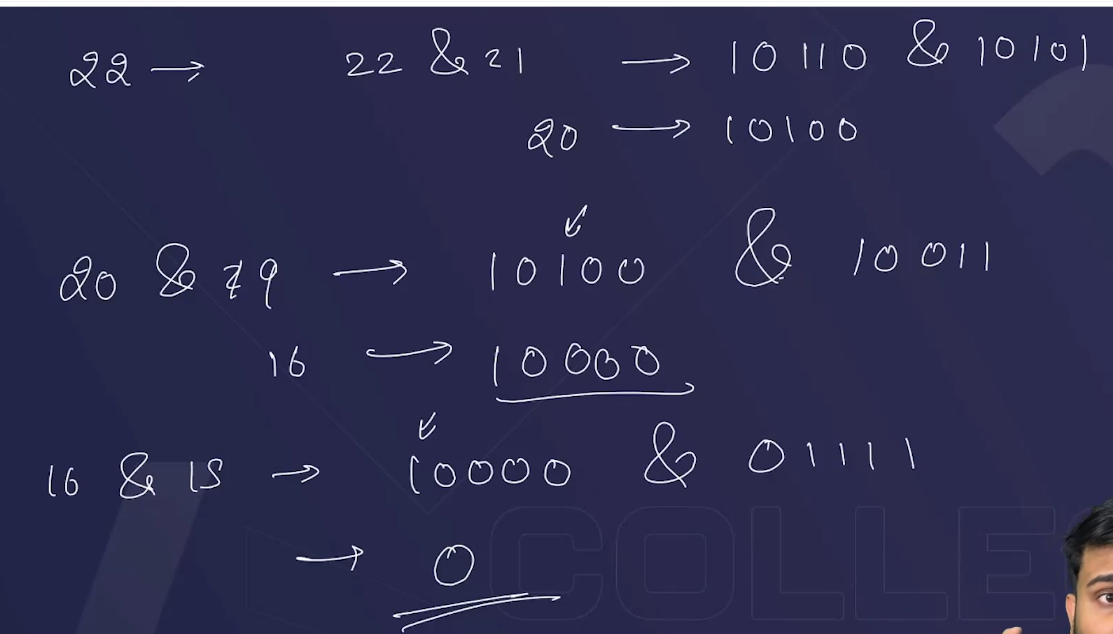 22 → 22 & 21 → 10110 & 10101
20 → 10100
20 & 19 → 10100 & 10011
16 → 10000
16 & 15 → 10000 & 01111
→ 0
COLLE